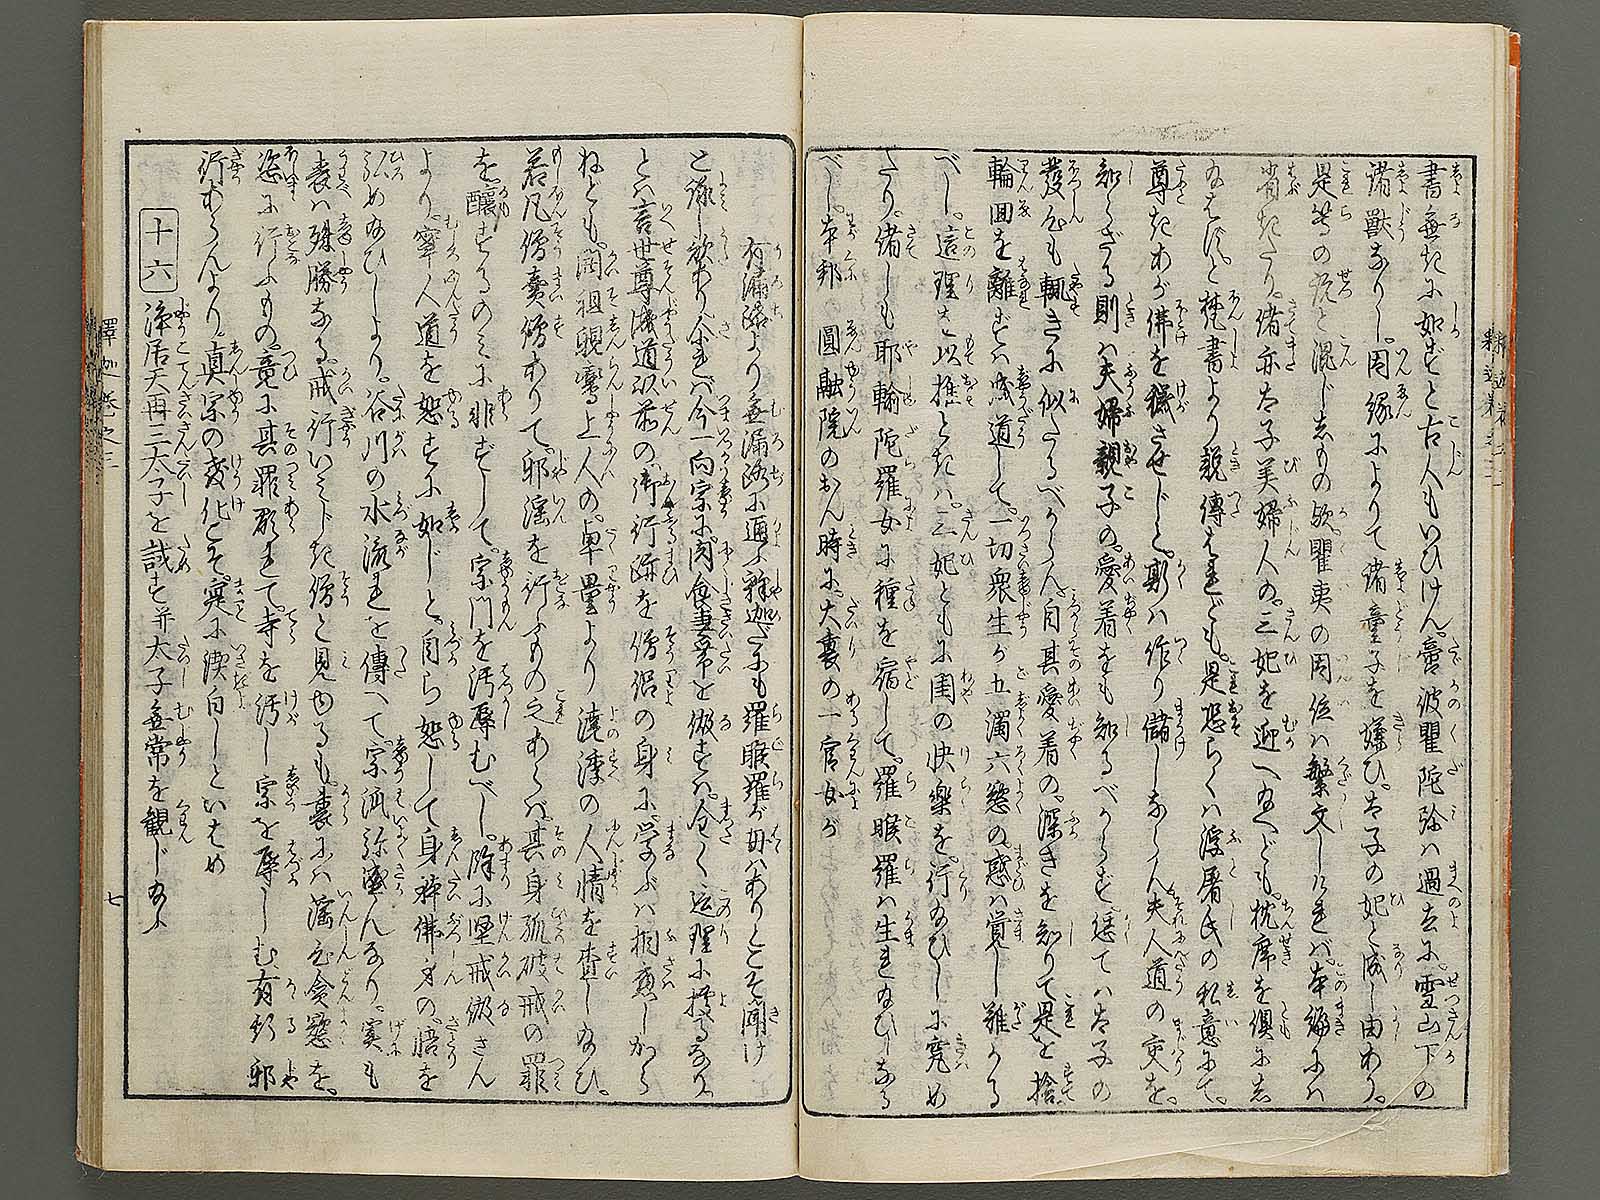 書無きに如ずと古人もいひけん。㝹波瞿陀弥ハ過去に。雪山下の
諸獣なりし。因縁によりて諸童子を嫌ひ。太子の妃と成し由あり。
是等の説と混じたるもの歟。瞿夷の因位ハ繁文しければ。本編にハ
省きたり。偖亦太子美婦人の。三妃を迎へ給へども。枕席を倶にし
給はずと。梵書より説傳はれども。是恐らくハ浮屠氏の私意にて。
尊きわが佛を穢させじと。斯ハ作り儲しならん夫人道の交を。
知らざる則ハ夫婦親子の。愛着をも知るべからず。恁てハ太子の
發心も輒きに似たるべからん。自其愛着の。深きを知りて是を捨。
輪回を離ずハ成道して。一切衆生が五濁六慾の。惑ハ覚し難かる
べし。這理を以推ときハ。三妃ともに閨の快樂を。行給ひしに究め
たり。偖しも耶輸陀羅女に種を宿して。羅睺羅ハ生れ給ひしなる
べし。本邦　圓融院のおん時に。大裏の一官女が
有漏路より無漏路に通ふ釋迦だにも羅睺羅が母ハありとこそ聞け
と詠し歌あり。今一向宗に。肉食妻帯を做ずハ。全く這理に據るなり。
とハ言世尊成道以前の。御行跡を僧侶の身に。学ぶハ相應しから
ねども。開祖親鸞上人の。卓量より澆季の人情を査し給ひ。
若凡僧賣僧ありて。邪淫を行ふもの之あらバ。其身孤破戒の罪
を醸するのミに非ずして。宗門を汚辱むべし。陰に堅戒做さん
より。寧人道を恕すに如じと。自ら恕して身躰佛身の。悟を
弘め給ひしより。谷川の水流れを傳へて。宗派弥盛んなり。実も
表ハ殊勝なる。戒行いミじき僧と見ゆるも。裏にハ淫心貪慾を。
恣に行ふもの。竟に其罪顕れて。寺を汚し宗を辱しむ。有形邪
行あらんより。真宗の教化こそ。寔に潔白しといはめ
十六　淨居天再三太子を誡む并太子無常を観じ給ふ
釋迦巻之三
七